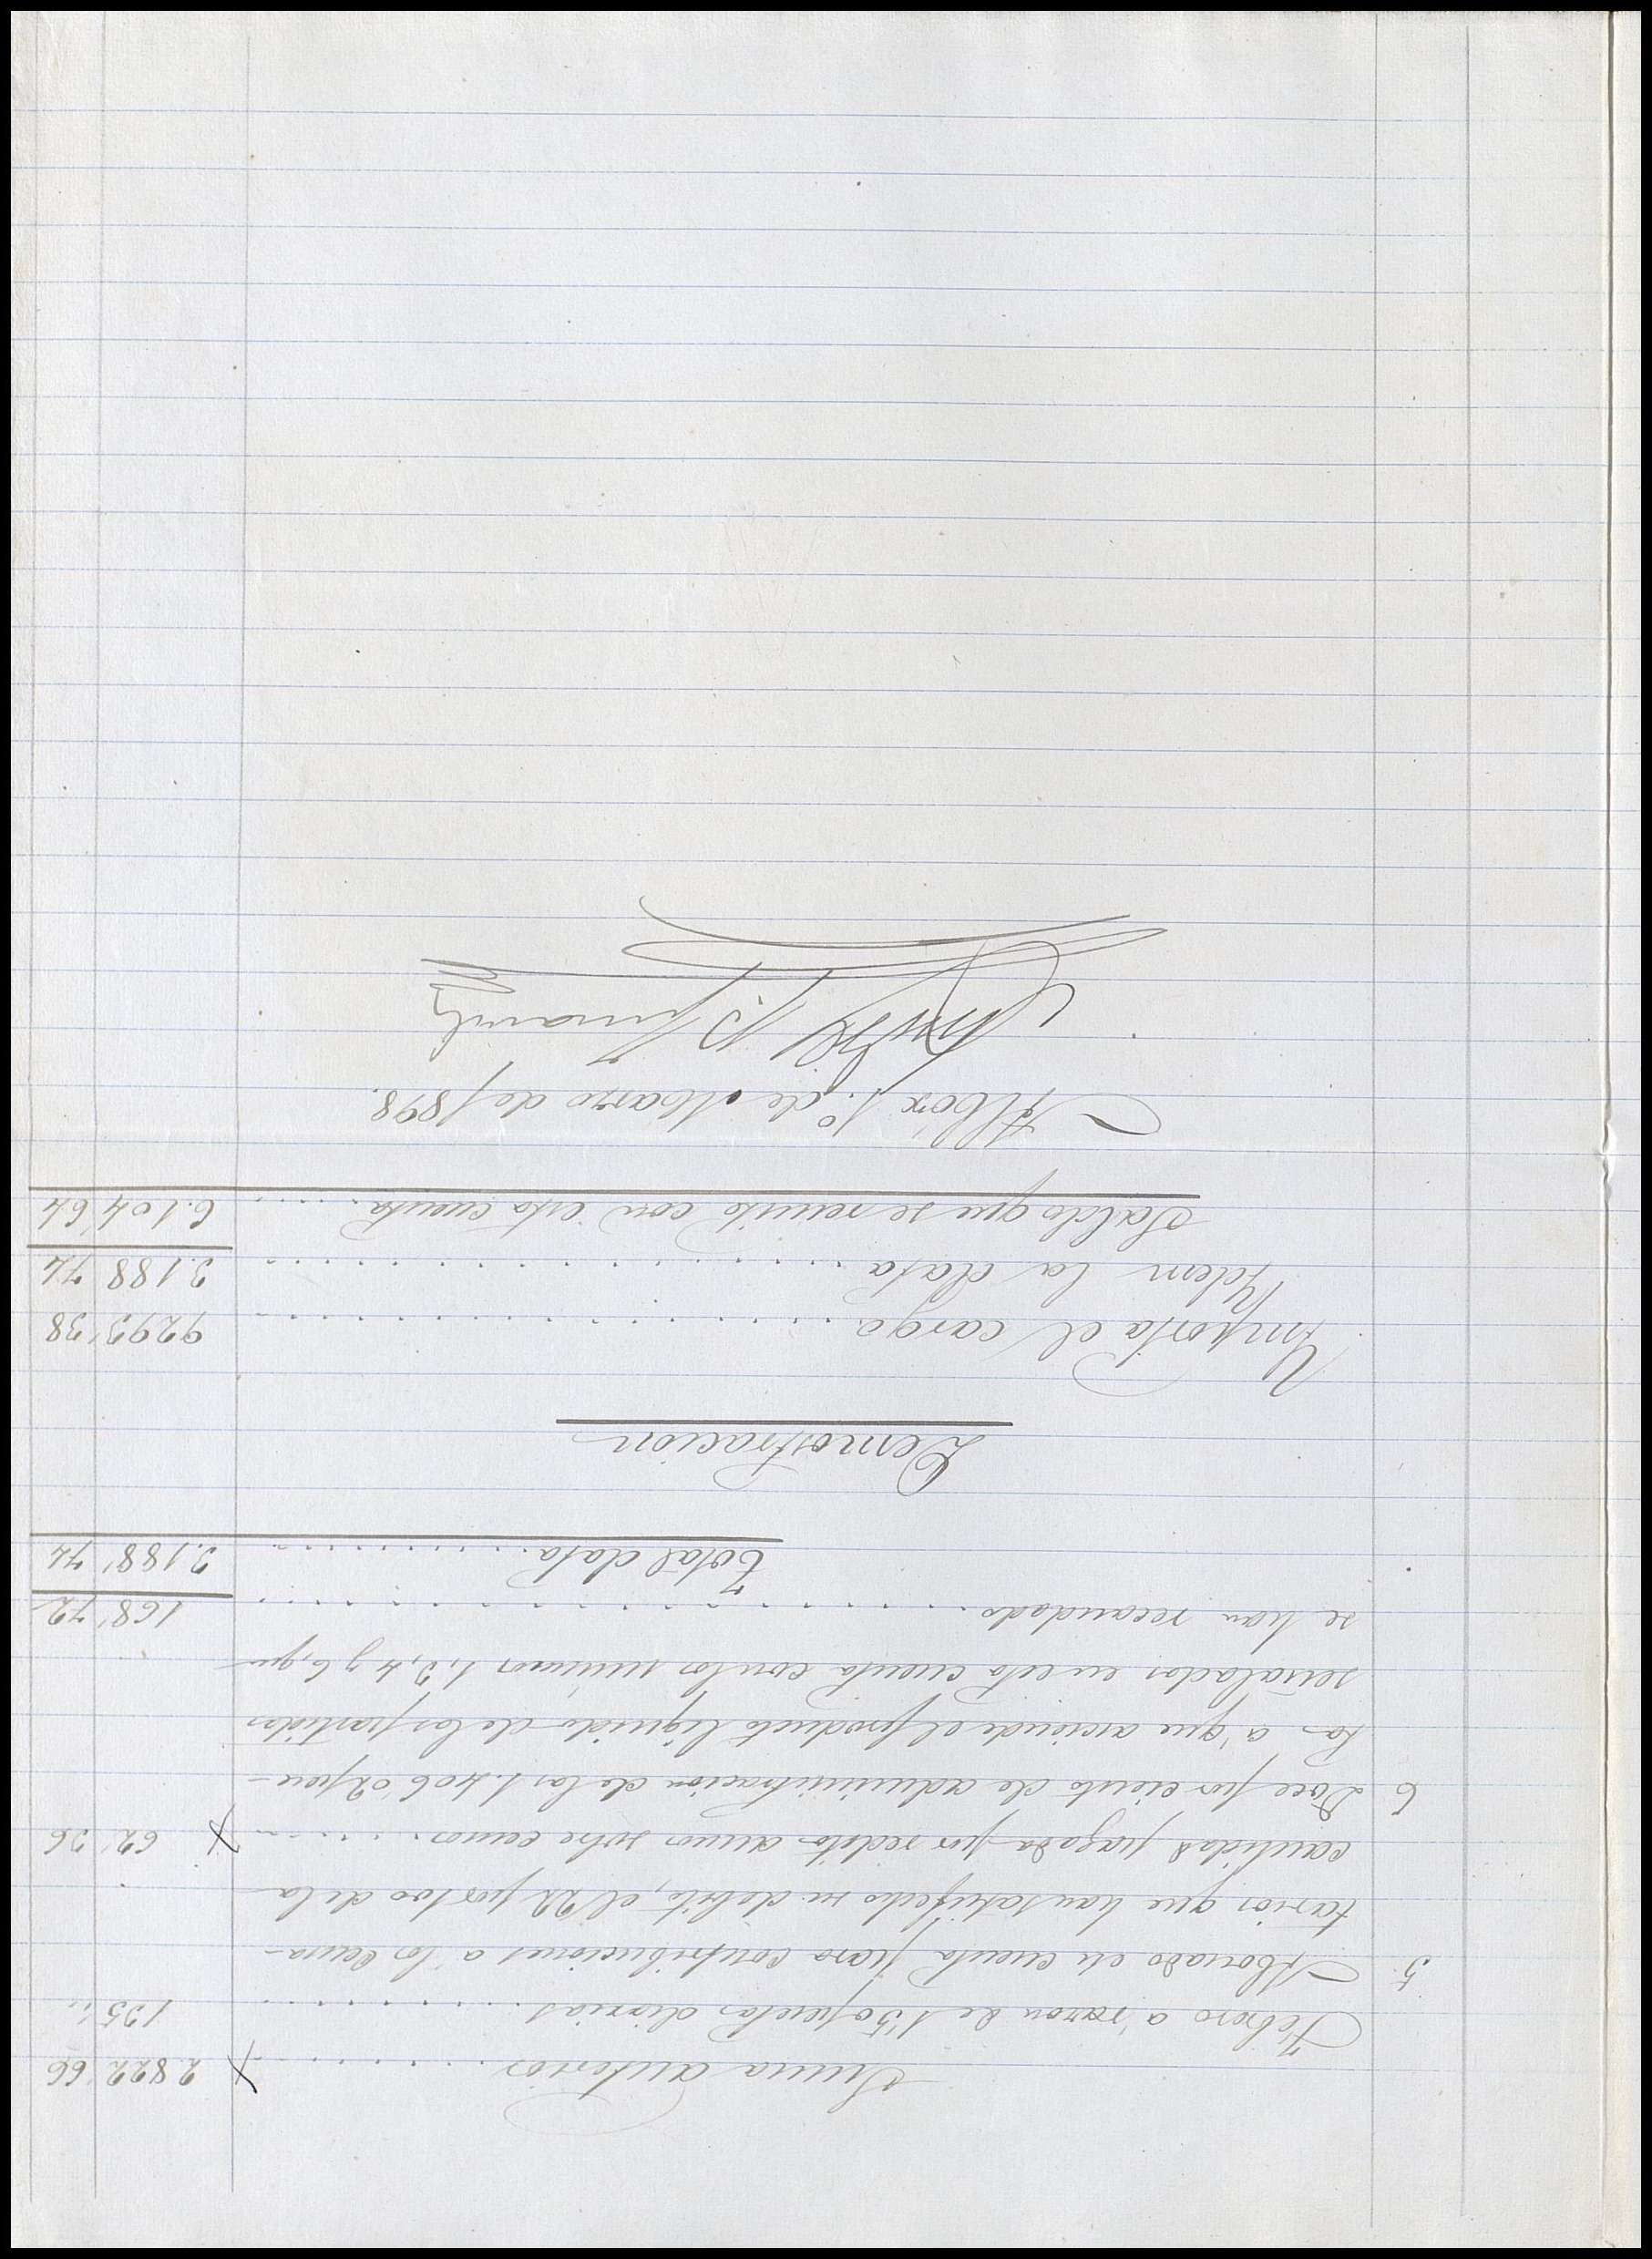 Suma anterior ........ 2822'66
Febrero a razon de 1'50 pesetas diarias ........ 135 "
5. Abonado en cuenta para contribuciones a los censa-
tarios que han satisfecho su debito, el 22 por 100 de la
cantidad pagada por reditos anuos sobre censos ...... 62'36
6 Doce por ciento de administracion de las 1.406'02 pese-
tas a que asciende el producto liquido de las partidas
señaladas en esta cuenta con los números 1, 3, 4 y 6, que
se han recaudado ........ 168'72
Total data ........ 3.188'74
Demostracion
Importa el cargo ........ 9293'38
Ydem la data ........ 3.188'74
Saldo que se remite con esta cuenta ..... 6.104'64
Albox 1º de Marzo de 1898.